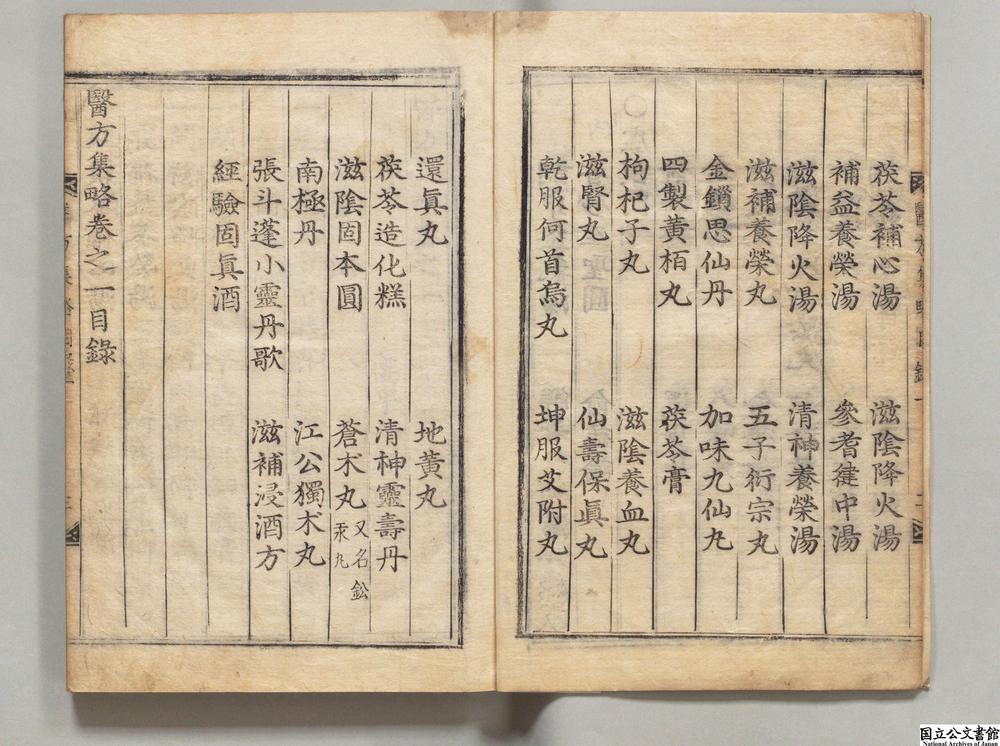 茯苓補心湯 滋陰降火湯
補益養榮湯 參耆建中湯
滋陰降火湯 清神養榮湯
滋補養榮丸 五子衍宗丸
金鎖思仙丹 加味九仙丸
四製黃栢丸 茯苓膏
枸杞子丸 滋陰養血丸
滋腎丸 仙壽保眞丸
乾服何首烏丸 坤服艾附丸
還眞丸 地黃丸
茯苓造化糕 清神靈壽丹
滋陰固本圓 蒼朮丸 又名鈆汞丸
南極丹 江公獨朮丸
張斗蓬小靈丹歌 滋補浸酒方
經驗固眞酒
醫方集略卷之一目錄
国立公文書館
National Archives of Japan